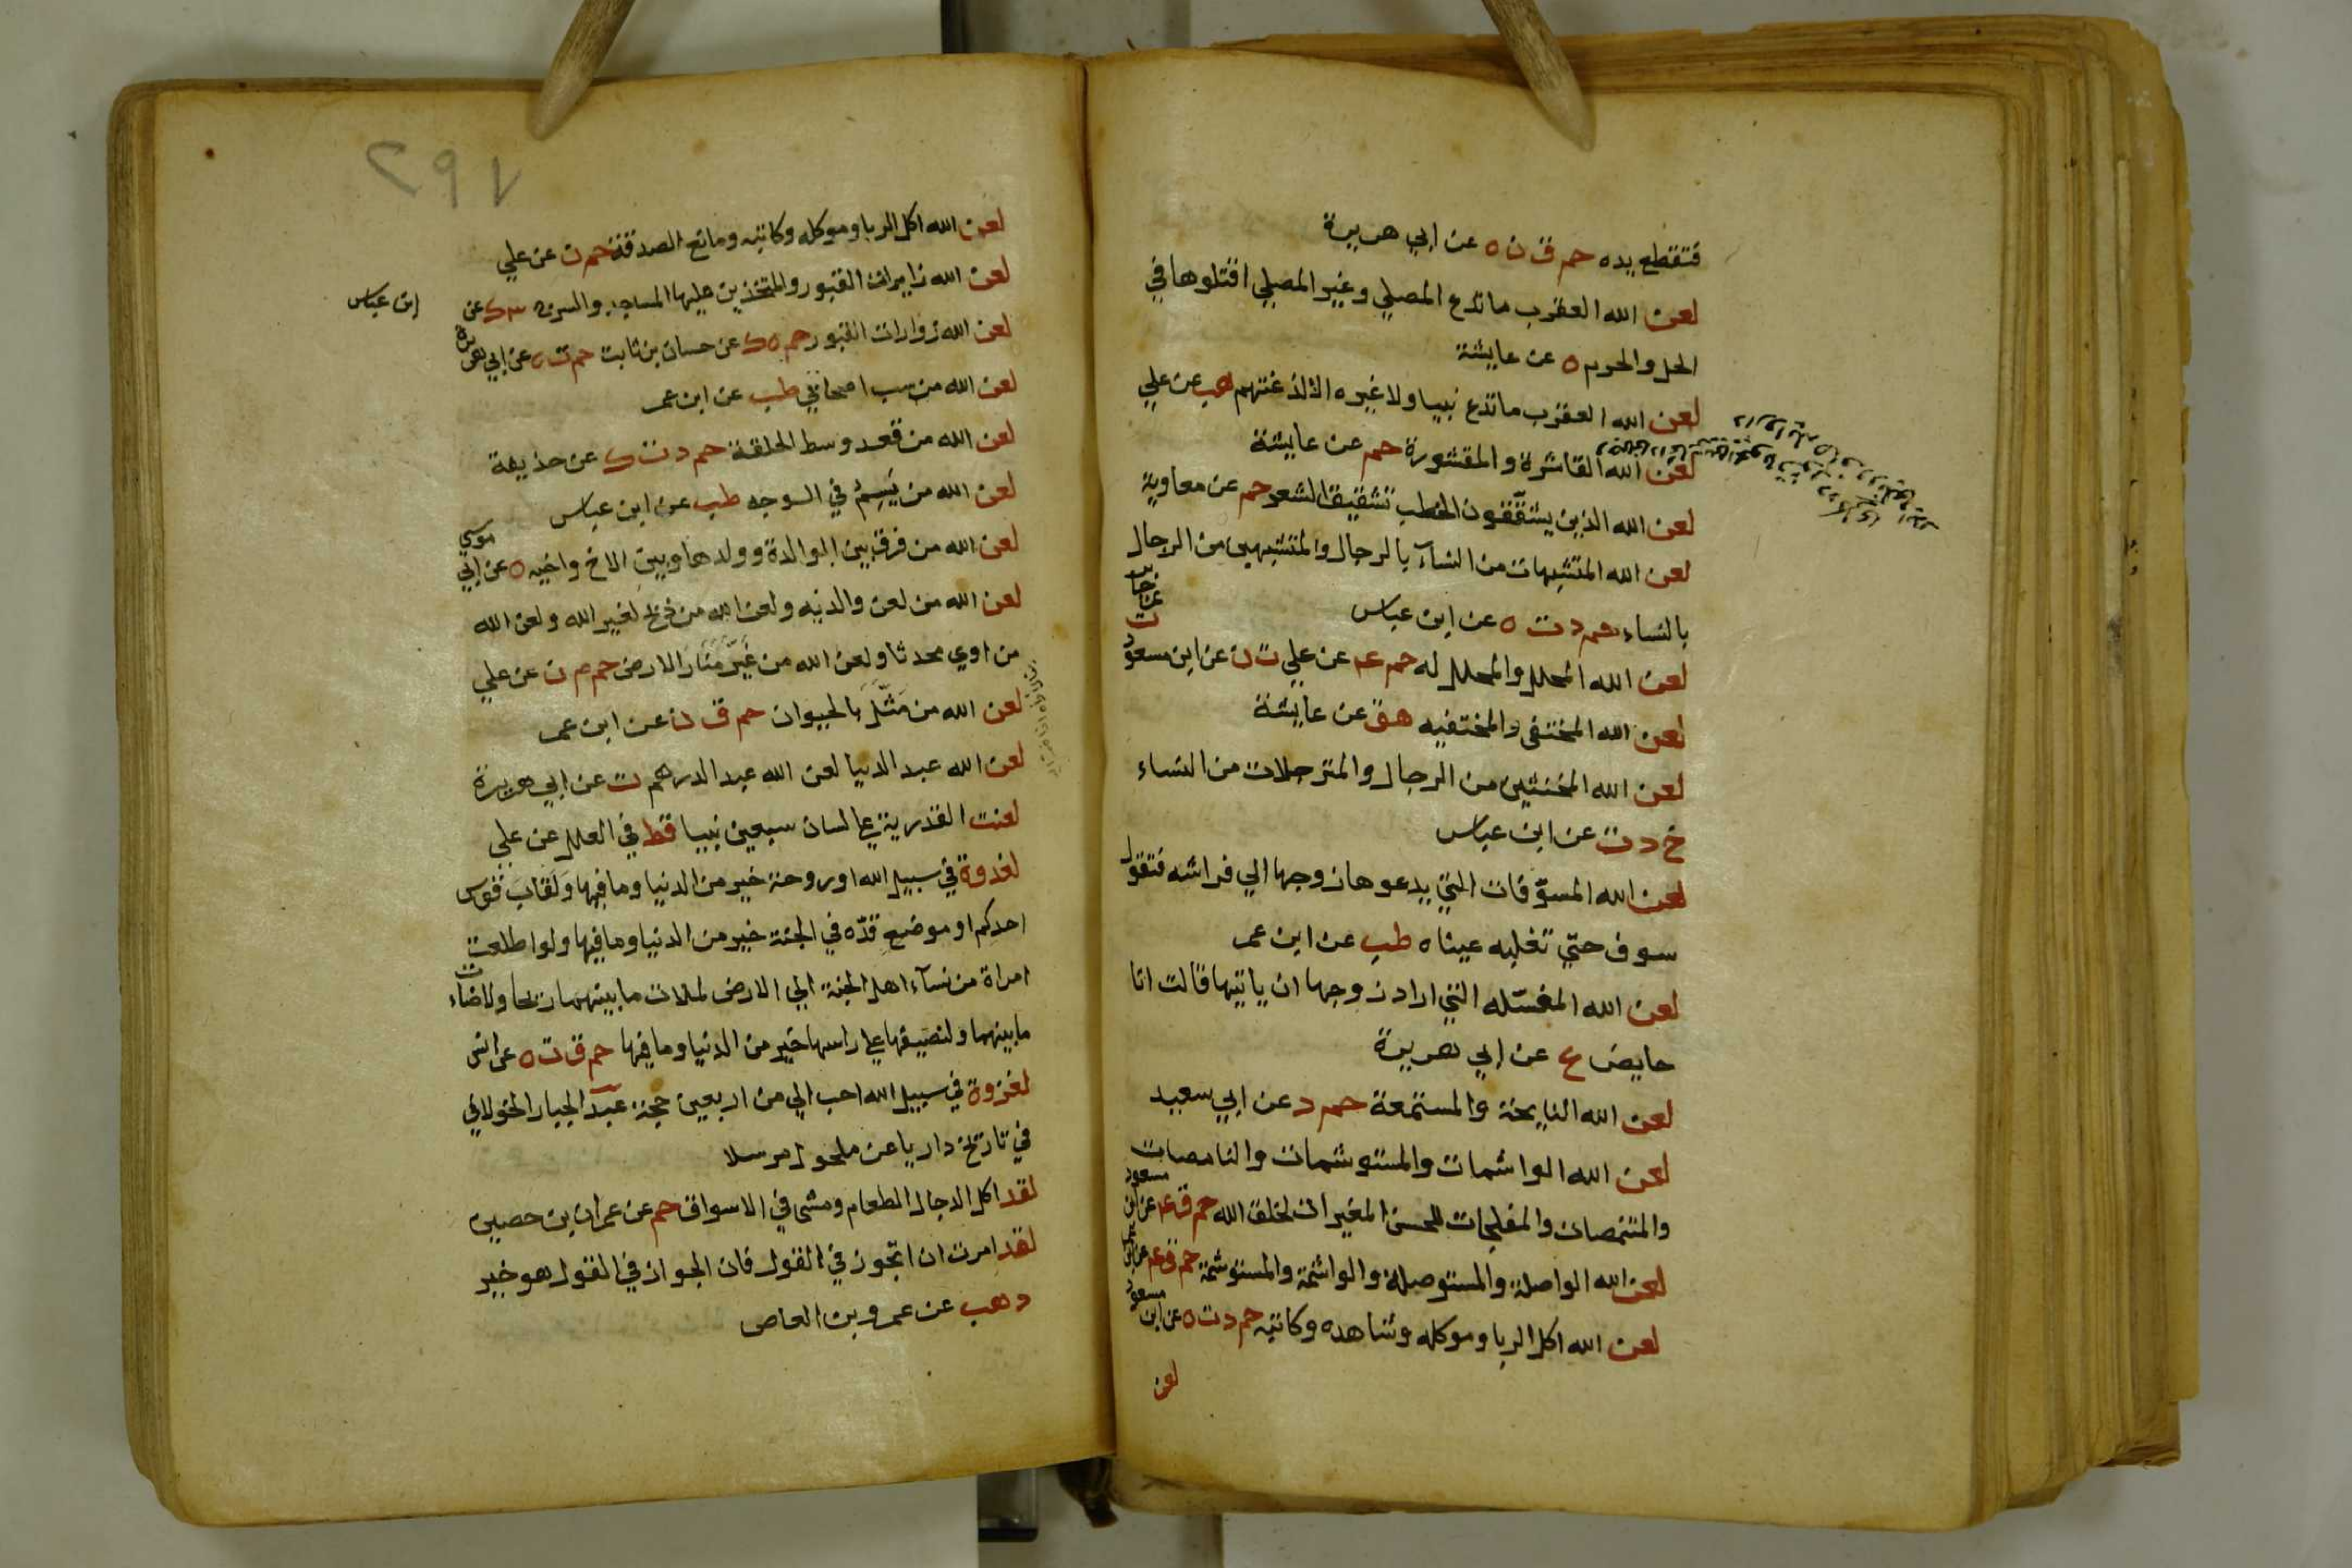 فتقطع يده حم ق ن ه عن ابي هريرة
لعن الله العقرب ما تدع المصلي وغير المصلي اقتلوها في
الحل والحرم ه عن عايشة
لعن الله العقرب ما تدع نبيا ولا غيره الا لذغتهم هب عن علي
لعن الله القاشرة والمقشورة حم عن عايشة
لعن الله الذين يشققون الخطب تشقيق الشعر حم عن معاوية
لعن الله المتشبهات من النسآء بالرجال والمتشبهين من الرجال
بالنساء حم د ت ه عن ابن عباس
لعن الله المحلل والمحلل له حم عم عن علي ت ن عن ابن مسعود ت عن جابر
لعن الله المختفى والمختفيه هق عن عايشة
لعن الله المخنثين من الرجال والمترجلات من النساء
خ د ت عن ابن عباس
لعن الله المسوّفات التي يدعوها زوجها الي فراشه فتقول
سوف حتي تغلبه عيناه طب عن ابن عمر
لعن الله المغسّله التي اراد زوجها ان ياتيها قالت انا
حايض ع عن ابي هريرة
لعن الله النايحة والمستمعة حم د عن ابي سعيد
لعن الله الواشمات والمستوشمات والنامصات
والمتنمصات والمفلجات للحسن المغيرات لخلق الله حم ق عم عن ابن مسعود
لعن الله الواصلة والمستوصلة والواشمة والمستوشمة حم ق عم عن ابن عمر
لعن الله اكل الربا وموكله وشاهده وكاتبه حم د ت ه عن ابن مسعود
لعن
٢٩٧
لعن الله اكل الربا وموكله وكاتبه ومانع الصدقة حم ن عن علي
لعن الله زايرات القبور والمتخذين عليها المساجد والسرج ٣ ك عن
ابن عباس
لعن الله زوارات القبور حم ه ك عن حسان بن ثابت حم ت ه عن ابي هريرة
لعن الله من سب اصحابي طب عن ابن عمر
لعن الله من قعد وسط الحلقة حم د ت ك عن حذيفة
لعن الله من يَسِمُ في الوجه طب عن ابن عباس
لعن الله من فرق بين الوالدة وولدها وبين الاخ واخيه ه عن ابي موسي
لعن الله من لعن والديه ولعن الله من ذبح لغير الله ولعن الله
من اوي محدثا ولعن الله من غَيَّرَ مَنَارَ الارض حم م ن عن علي
لعن الله من مَثَّلَ بالحيوان حم ق ن عن ابن عمر
لعن الله عبد الدنيا لعن الله عبد الدرهم ت عن ابي هريرة
لعنت القدرية علي لسان سبعين نبيا قط في العلل عن علي
لغدوة في سبيل الله او روحة خير من الدنيا وما فيها وَلَقابَ قوس
احدكم او موضع قدّه في الجنة خير من الدنيا وما فيها ولو اطلعت
امراة من نسآء اهل الجنة الي الارض لملات ما بينهما ريحا ولاضاءت
ما بينهما ولنصيفها علي راسها خير من الدنيا وما فيها حم ق ت ه عن انس
لغزوة في سبيل الله احب الي من اربعين حجة عبد الجبار الخولاني
في تاريخ داريا عن مكحول مرسلا
لقد اكل الدجال الطعام ومشي في الاسواق حم عن عمران بن حصين
لقد امرت ان اتجوز في القول فان الجواز في القول هو خير
د هب عن عمرو بن العاص